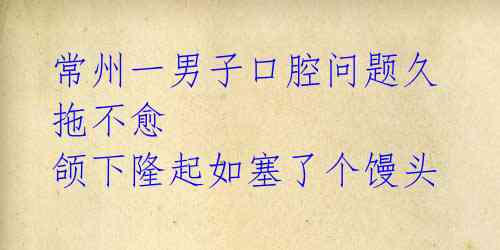 常州一男子口腔问题久
拖不愈
颌下隆起如塞了个馒头